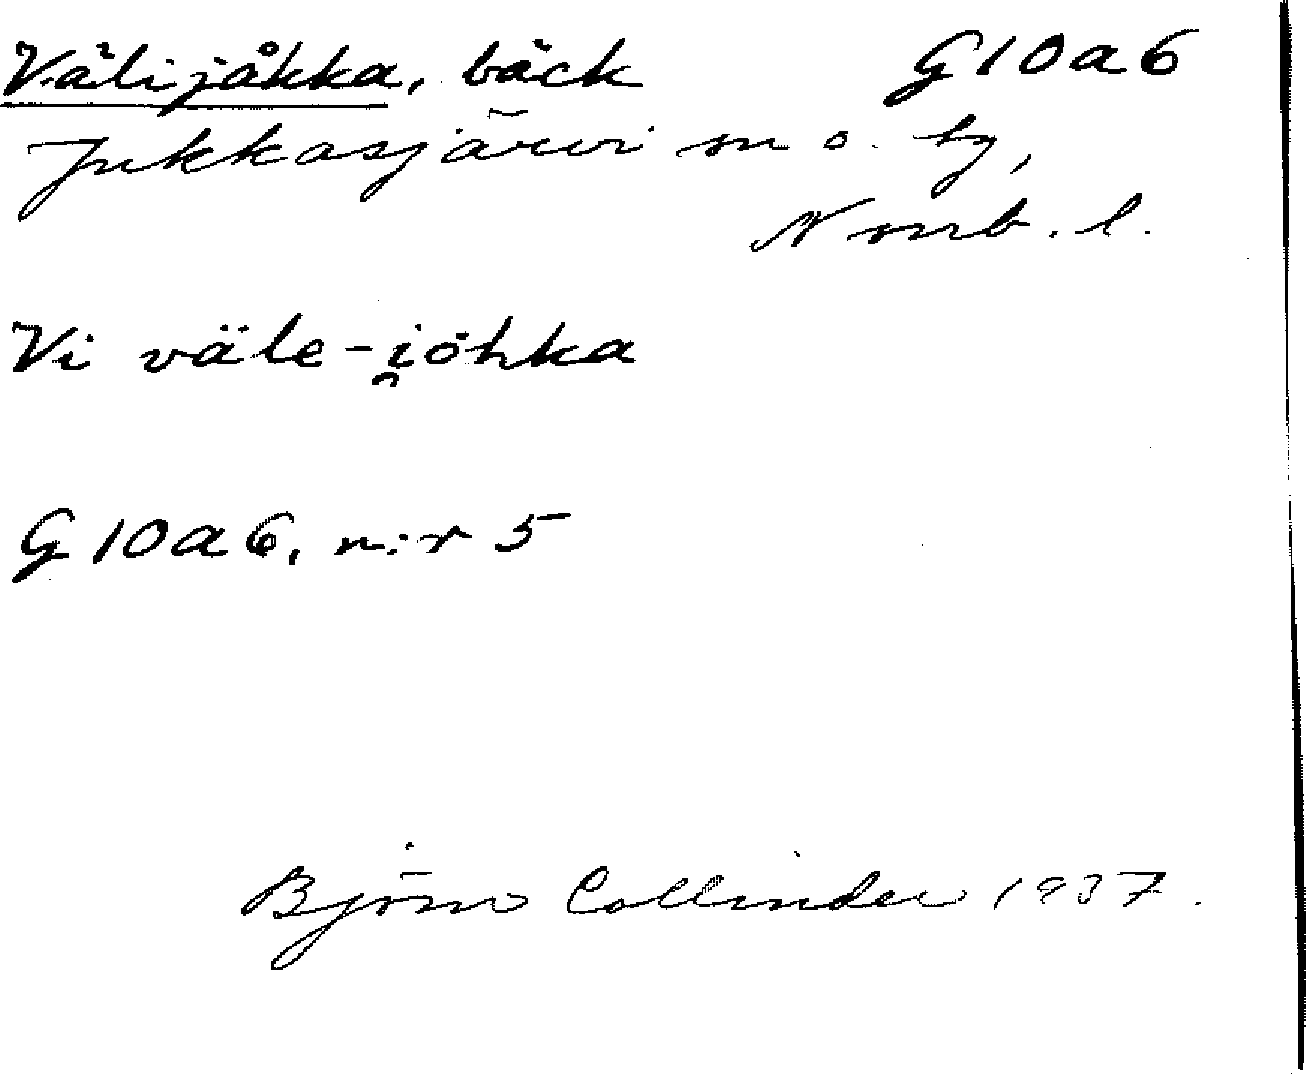 Välijåkka, bäck G10a6
Jukkasjärvi sn o. by,
Norrb. l.
Vi väle-i̯ohka
G10a6, n:r 5
Björn Collinder 1937.